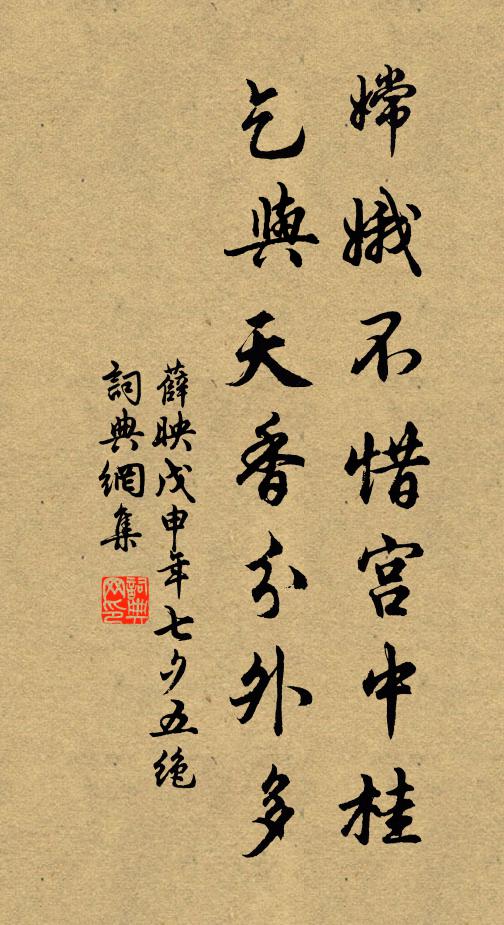 嫦娥不惜宫中桂
乞與天香分外多
薛映戊申年七夕五絶
詞典網集
詞典網印